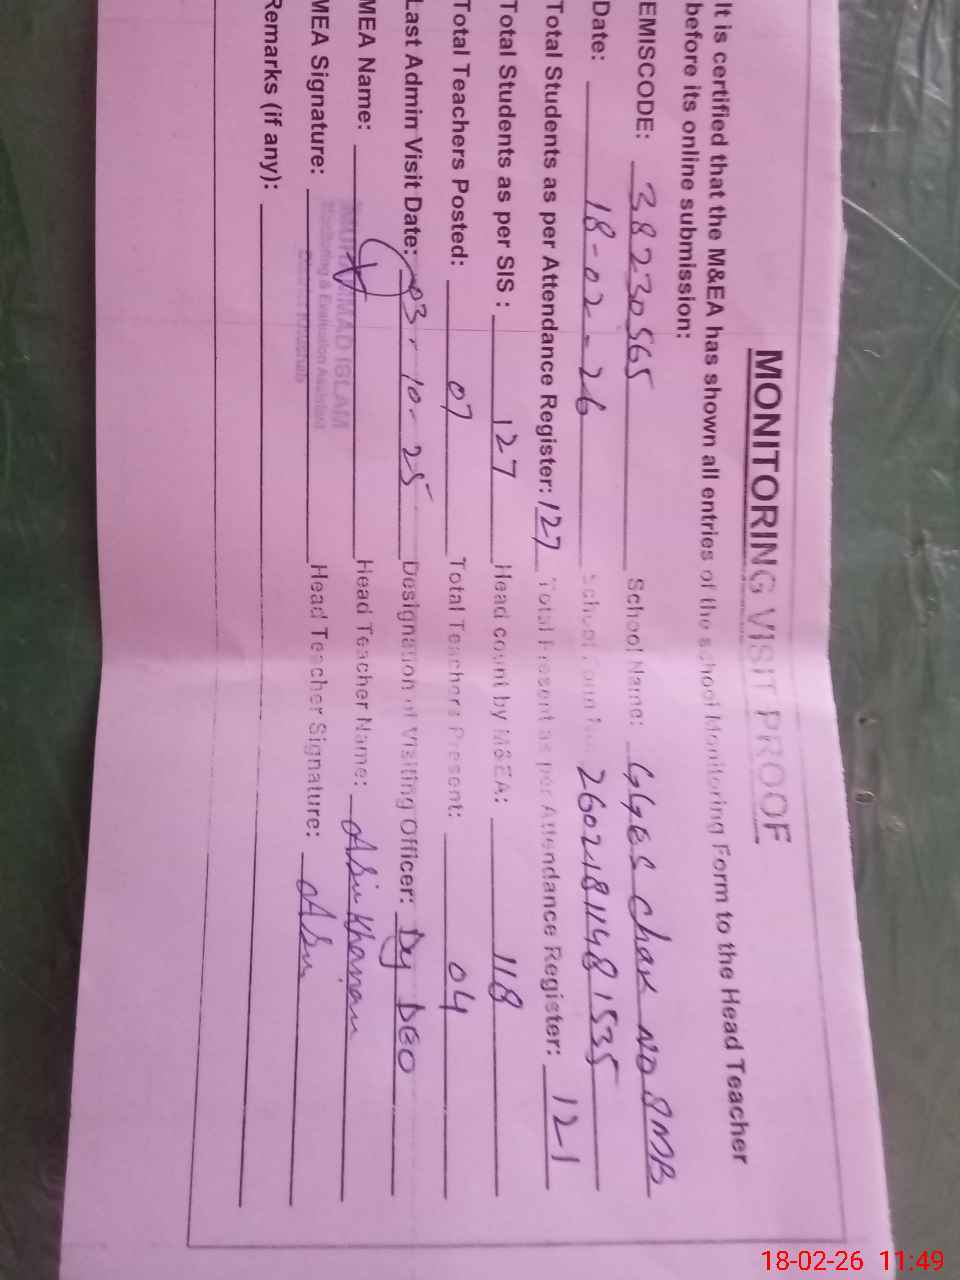 MONITORING VISIT PROOF
It is certified that the M&EA has shown all entries of the school Monitoring Form to the Head Teacher
before its online submission:
EMISCODE: 38230565 School Name: GGES Chak No 8MB
Date: 18-02-26 School Form No: 260218114815 35
Total Students as per Attendance Register: 127 Total Present as per Attendance Register: 121
Total Students as per SIS : 127 Head count by M&EA: 118
Total Teachers Posted: 07 Total Teachers Present: 04
Last Admin Visit Date: 03-10-25 Designation of Visiting Officer: Dy DEO
MEA Name: Head Teacher Name:
MUHAMMAD ISLAM
Monitoring & Evaluation Assistant
District Khushab
MEA Signature: Head Teacher Signature:
Remarks (if any):
18-02-26 11:49